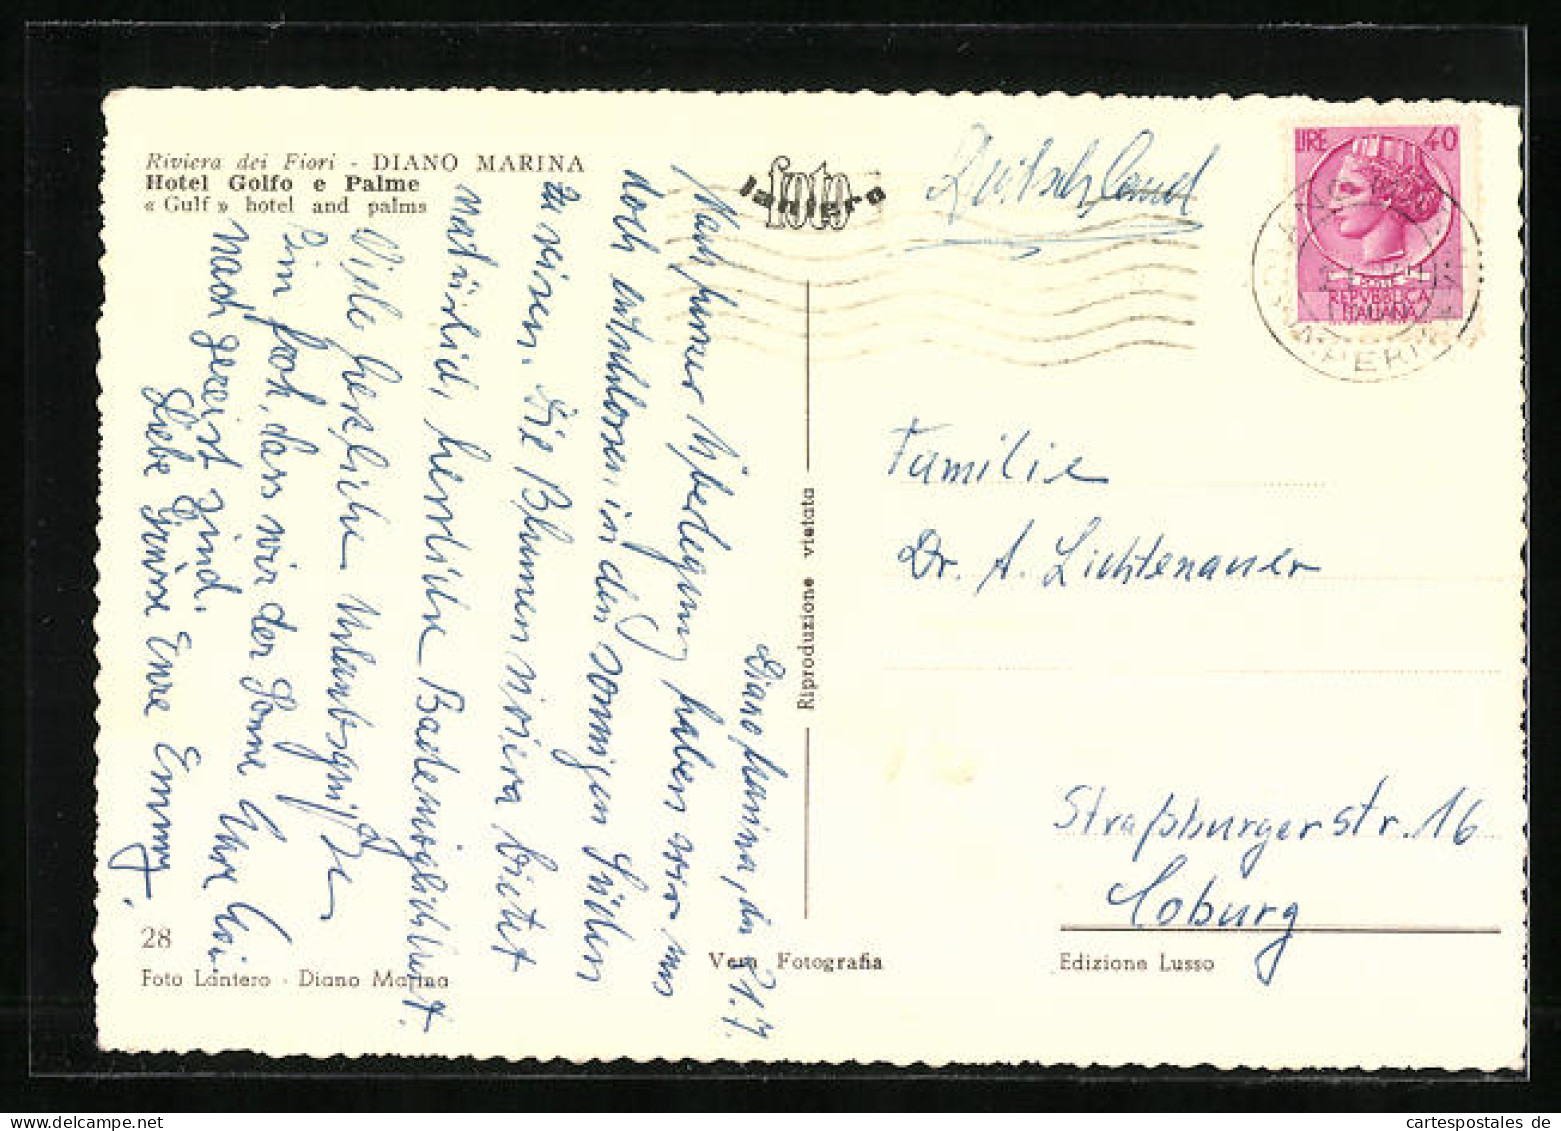 Riviera dei Fiori - DIANO MARINA
Hotel Golfo e Palme
« Gulf » hotel and palms
foto
lantero
Deutschland
LIRE 40
REPVBBLICA
ITALIANA
Diano Marina, den 21.7.
Nach kurzer Überlegung haben wir uns
doch entschlossen in den sonnigen Süden
zu reisen. Die Blumenriviera bietet
natürlich herrliche Bademöglichkeit.
Viele herzliche Urlaubsgrüße
Ein hoch, dass wir der Sonne
nach gereist sind.
Liebe Grüsse Eure Emmy
Familie
Dr. A. Lichtenauer
Straßburgerstr. 16
Coburg
Riproduzione vietata
28
Foto Lantero - Diano Marina
Vera Fotografia
Edizione Lusso
cartespostales de